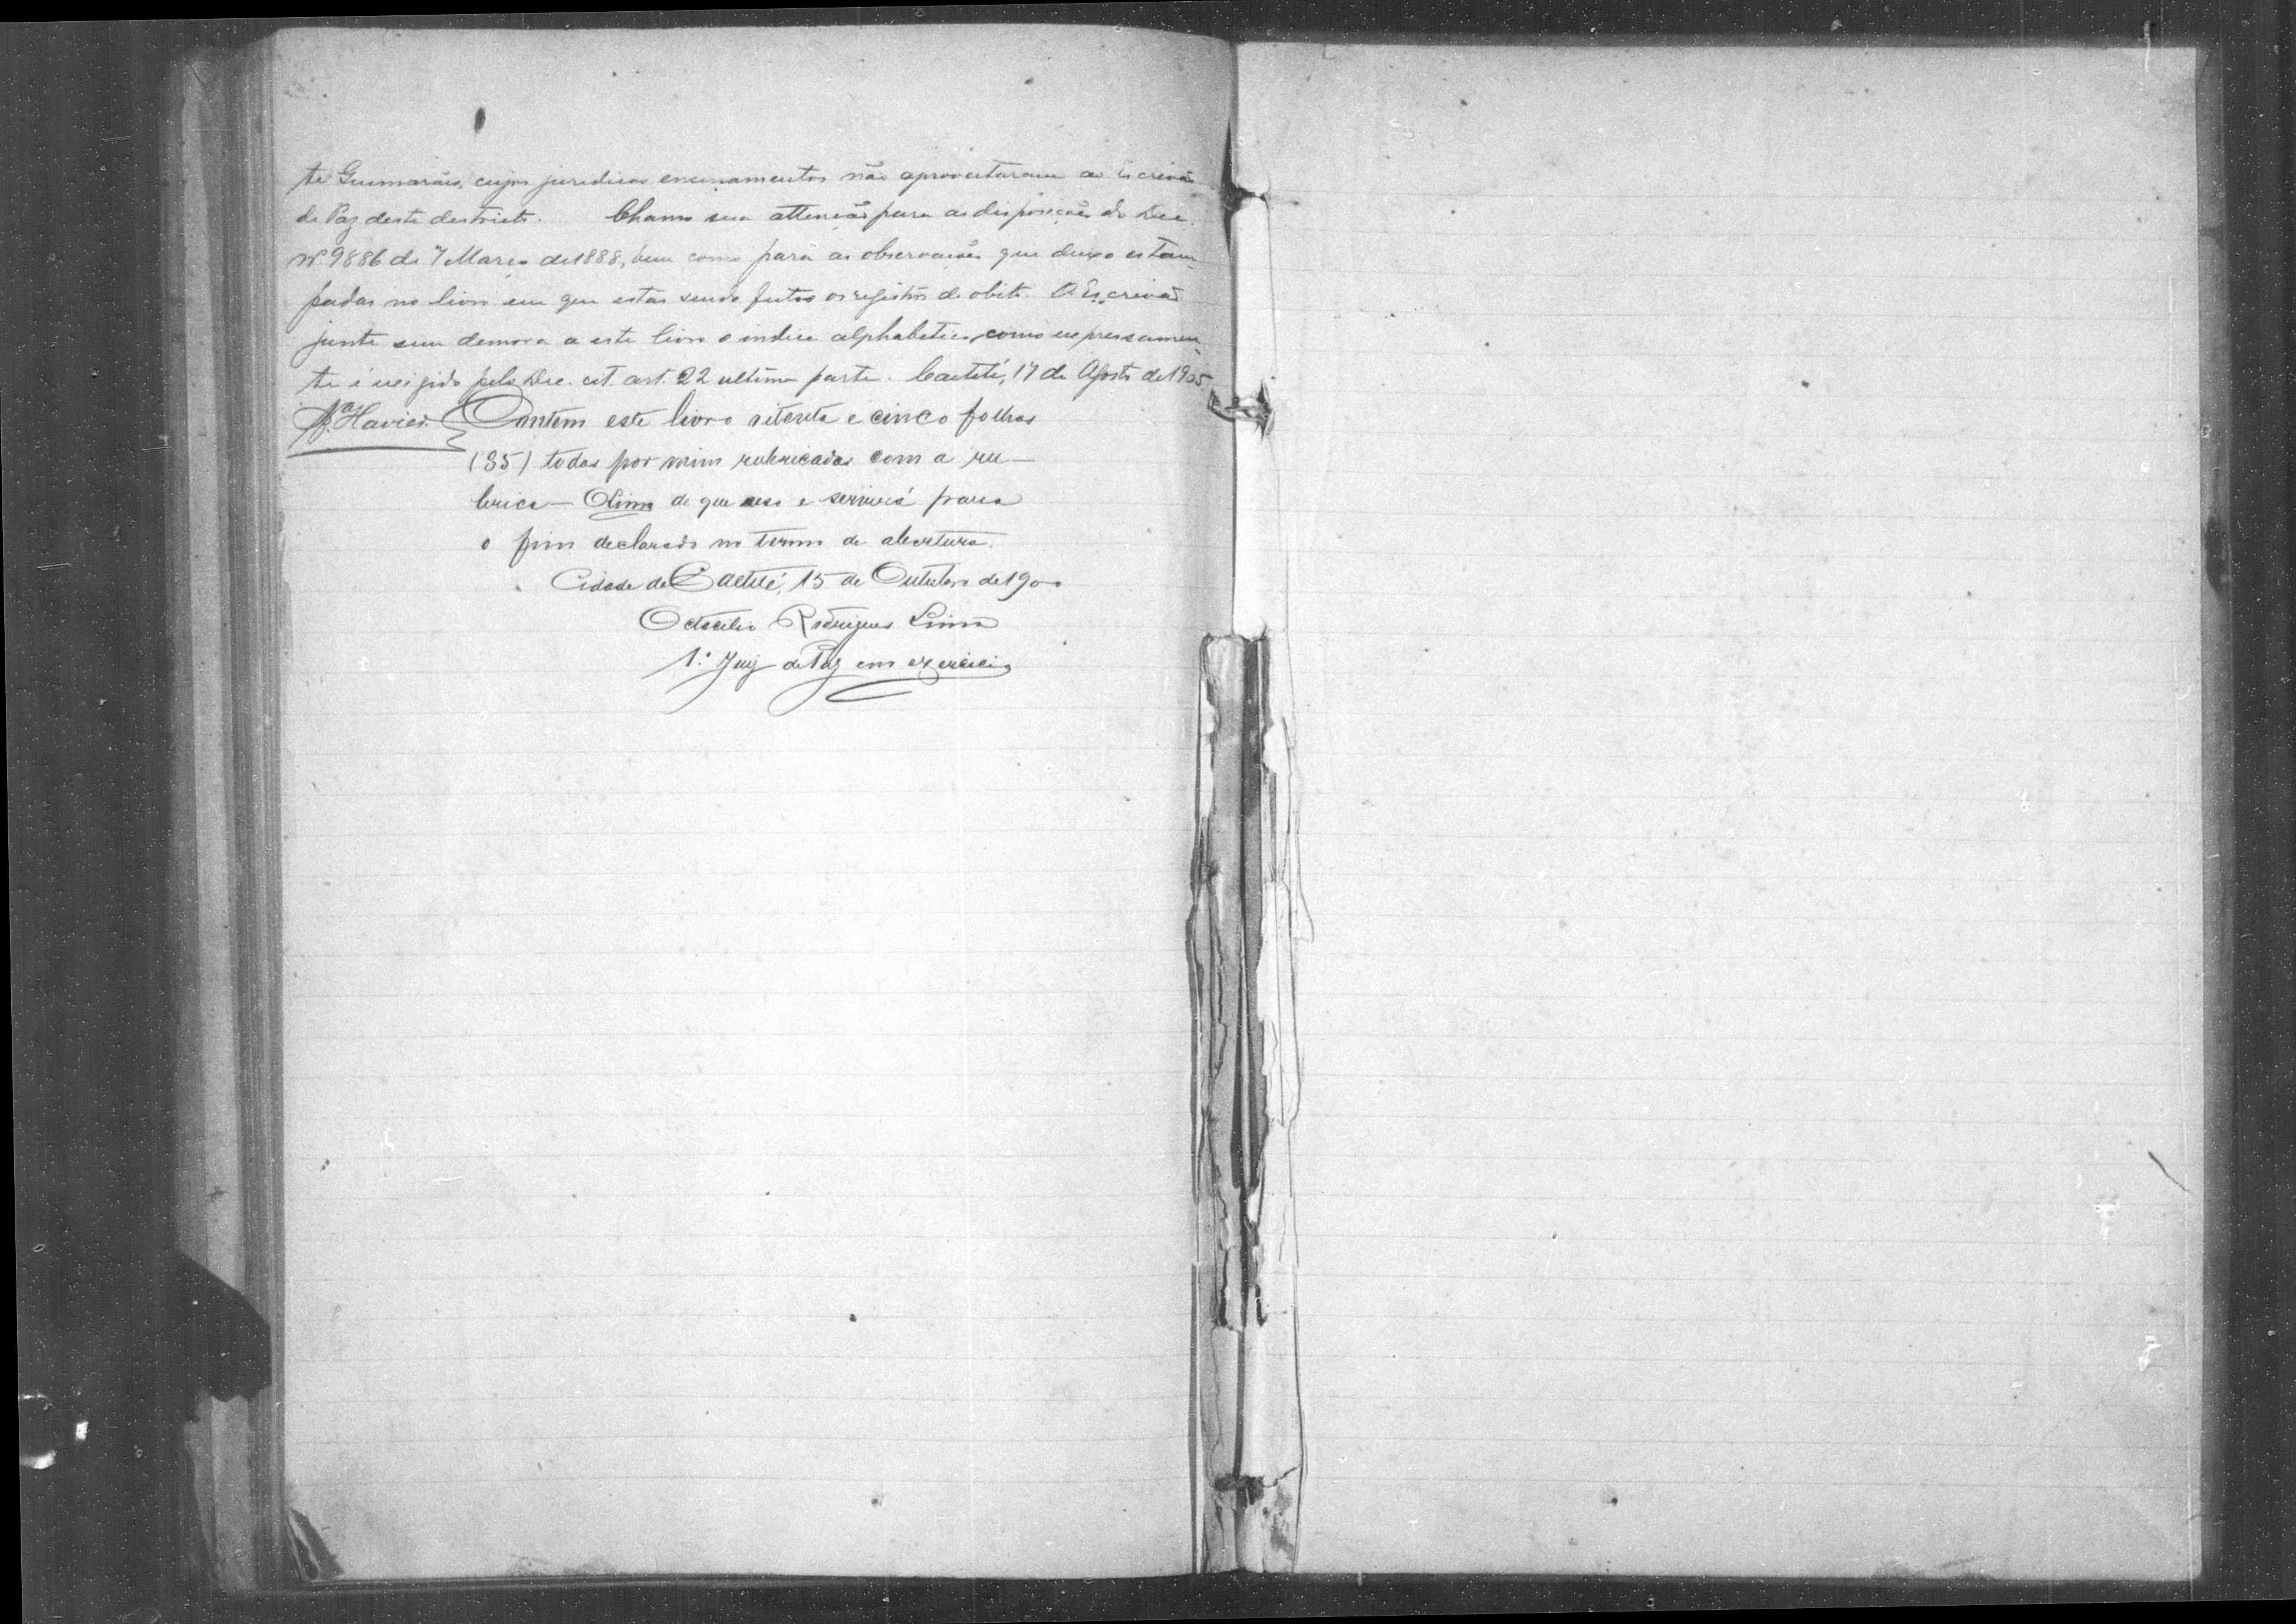 te Guimarães, cujos juridicos ensinamentos não aproveitaram ao Escrivão
de Paz deste destricto. Chamo sua attenção para as disposições do Dec.
Nº 9886 de 7 Março de 1888, bem como para as observações que deixo estam-
padas no livro em que estão sendo feitos os registros de obito. O Escrivão
junte sem demora a este livro o indice alphabetico, como expressamen-
te é exigido pelo Dec. cit. art. 22 ultima parte. Caetité, 17 de Agosto de 1905.
Contem este livro setenta e cinco folhas
todas por mim rubricadas com a ru-
brica — Lima de que uso e servirá para
o fim declarado no termo de abertura.
Cidade de Caetité, 15 de Outubro de 1900
Octacilio Rodrigues Lima
1º Juiz de Paz em exercicio